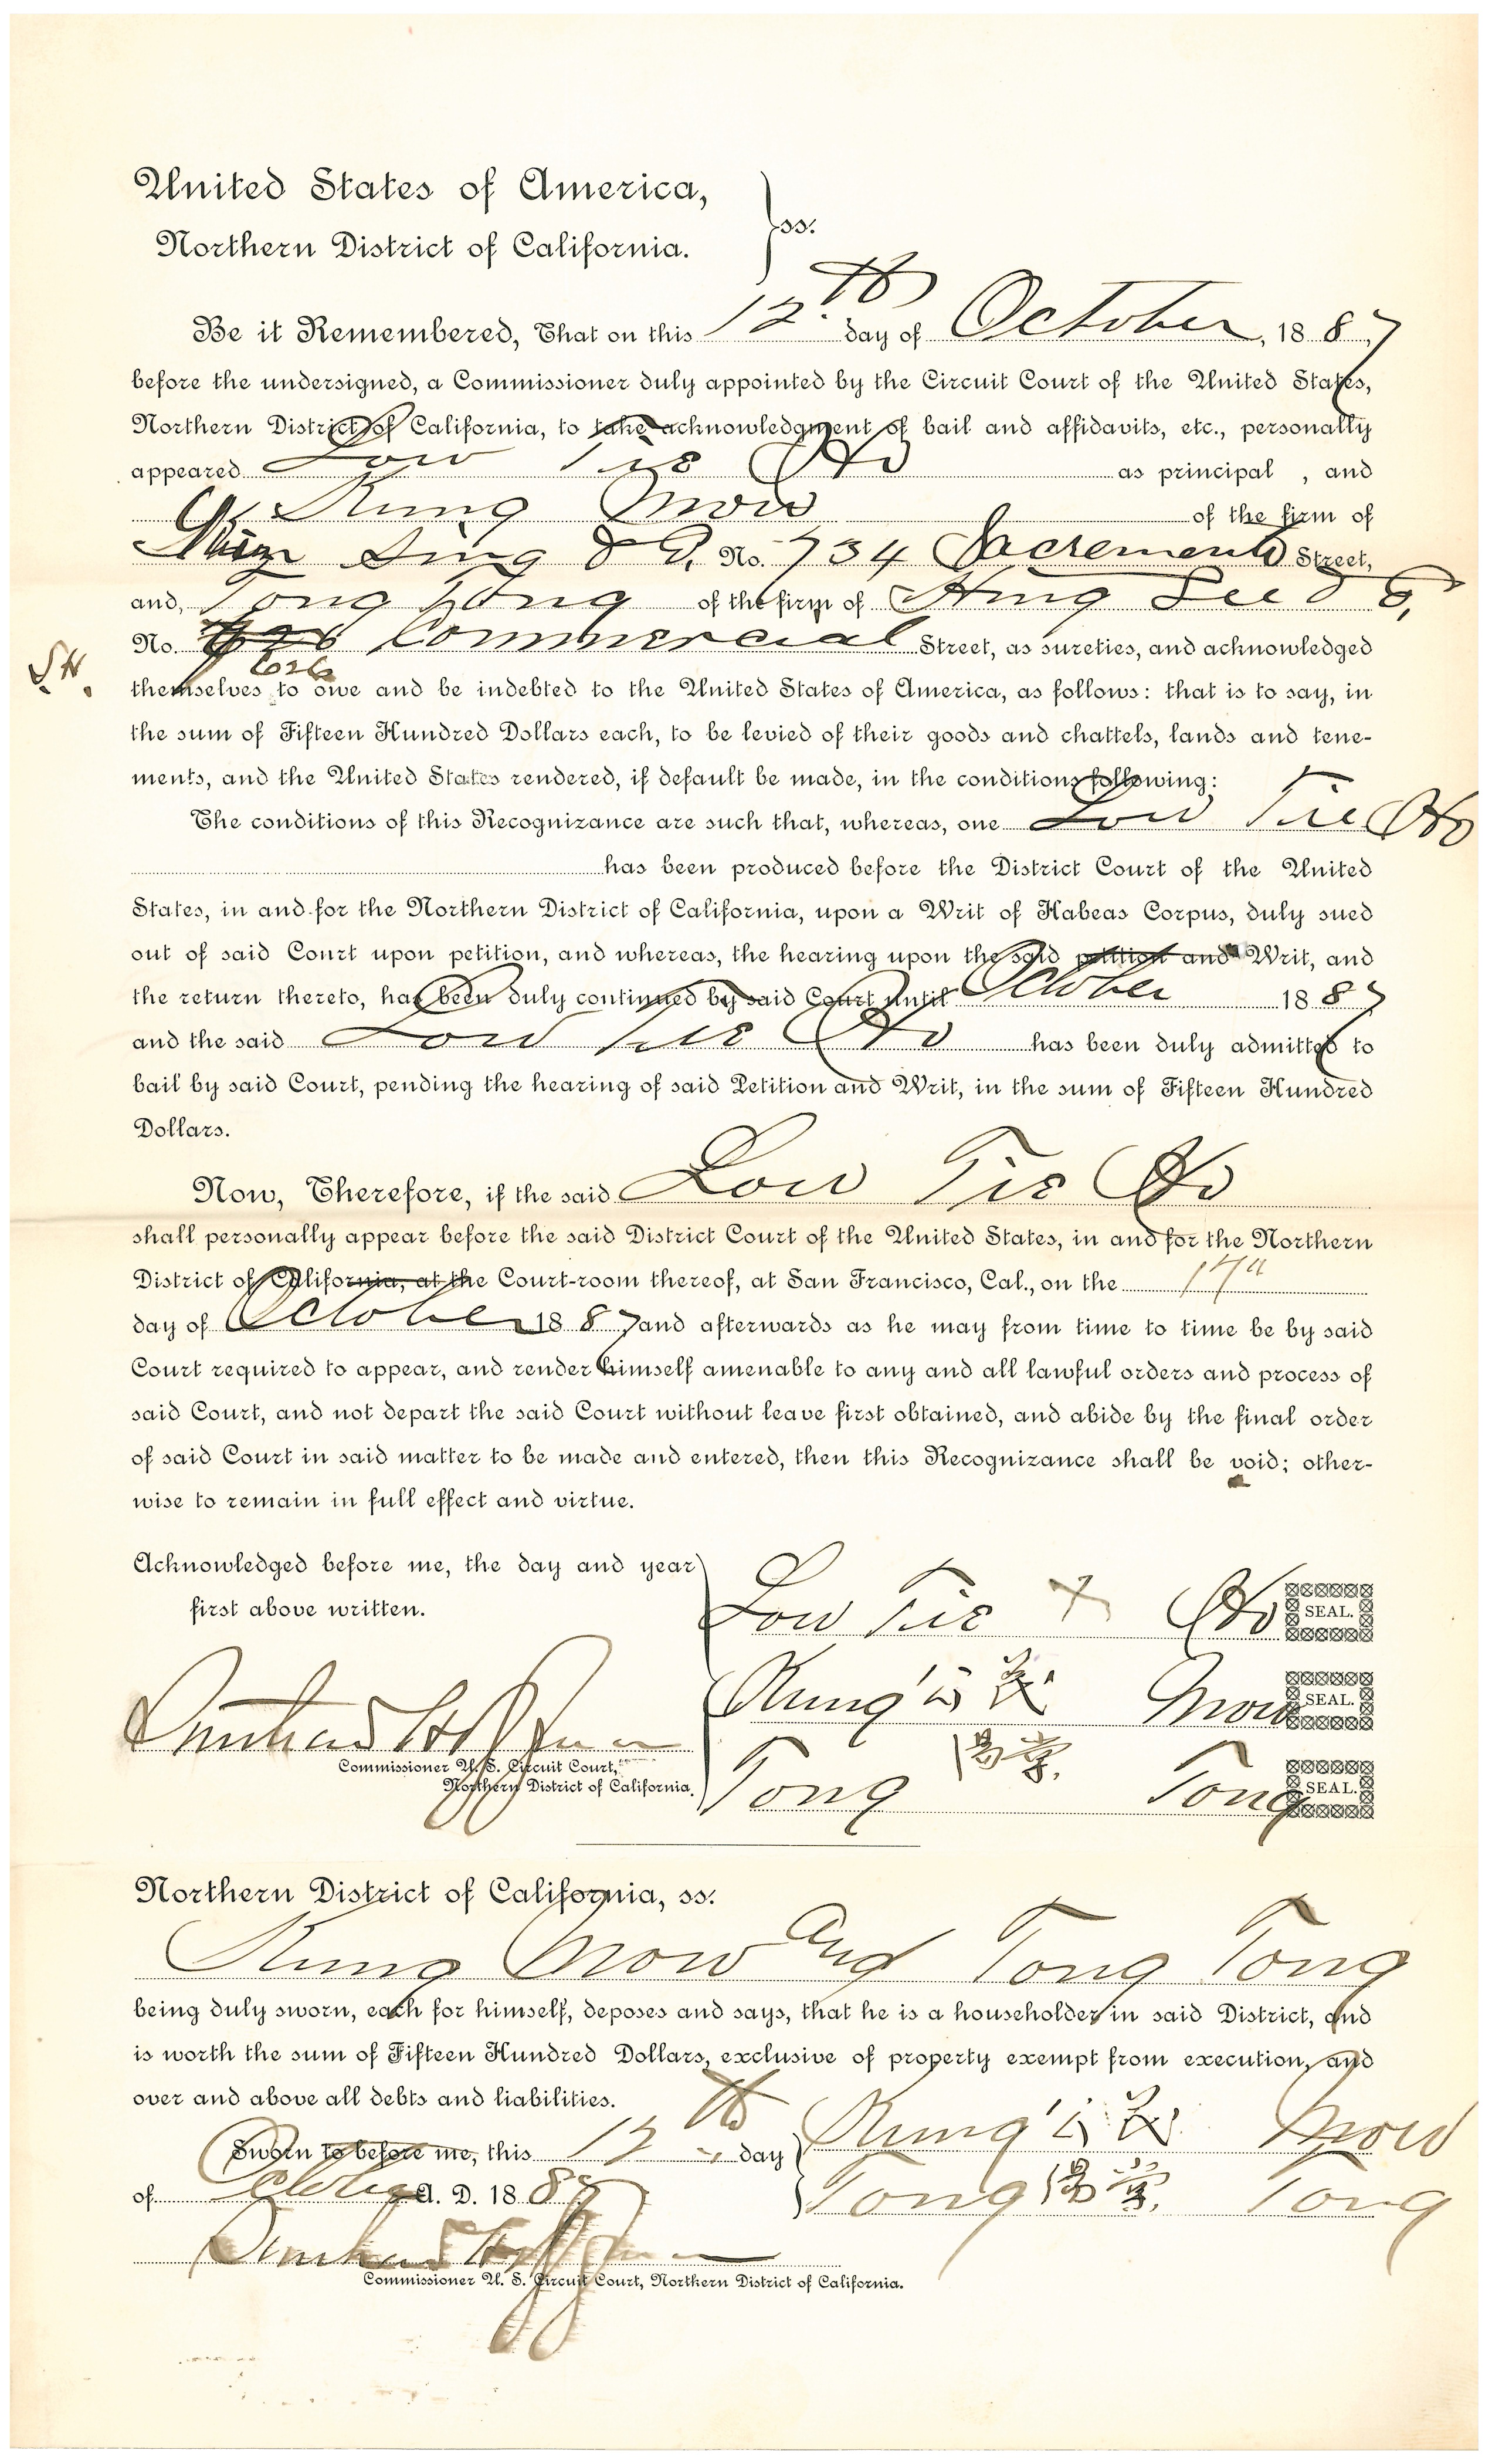 United States of America,
Northern District of California. } ss.
Be it Remembered, That on this 12th day of October, 1887
before the undersigned, a Commissioner duly appointed by the Circuit Court of the United States,
Northern District of California, to take acknowledgment of bail and affidavits, etc., personally
appeared Low Tie Ho as principal , and
Kung Mow of the firm of
Sing & Co. No. 734 Sacremento Street,
and, Tong Tong of the firm of Hing Lee & Co,
No. 626 Commercial Street, as sureties, and acknowledged
S.H.
themselves to owe and be indebted to the United States of America, as follows: that is to say, in
the sum of Fifteen Hundred Dollars each, to be levied of their goods and chattels, lands and tene-
ments, and the United States rendered, if default be made, in the conditions following:
The conditions of this Recognizance are such that, whereas, one Low Tie Ho
has been produced before the District Court of the United
States, in and for the Northern District of California, upon a Writ of Habeas Corpus, duly sued
out of said Court upon petition, and whereas, the hearing upon the said petition and Writ, and
the return thereto, has been duly continued by said Court until October 1887
and the said Low Tie Ho has been duly admitted to
bail by said Court, pending the hearing of said Petition and Writ, in the sum of Fifteen Hundred
Dollars.
Now, Therefore, if the said Low Tie Ho
shall personally appear before the said District Court of the United States, in and for the Northern
District of California, at the Court-room thereof, at San Francisco, Cal., on the 17"
day of October 1887 and afterwards as he may from time to time be by said
Court required to appear, and render himself amenable to any and all lawful orders and process of
said Court, and not depart the said Court without leave first obtained, and abide by the final order
of said Court in said matter to be made and entered, then this Recognizance shall be void; other-
wise to remain in full effect and virtue.
Acknowledged before me, the day and year
first above written.
Low Tie x Ho SEAL.
Kung Mow SEAL.
Commissioner U. S. Circuit Court,
Northern District of California.
Tong Tong SEAL.
Northern District of California, ss.
Kung Mow and Tong Tong
being duly sworn, each for himself, deposes and says, that he is a householder in said District, and
is worth the sum of Fifteen Hundred Dollars, exclusive of property exempt from execution, and
over and above all debts and liabilities.
Sworn to before me, this 12th day Kung Mow
of October A. D. 1887 Tong Tong
Commissioner U. S. Circuit Court, Northern District of California.